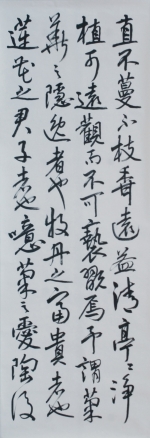 直不蔓不枝香遠益清亭亭净
植可遠觀而不可褻翫焉予謂菊
華之隱逸者也牡丹之富貴者也
蓮花之君子者也噫菊之愛陶後